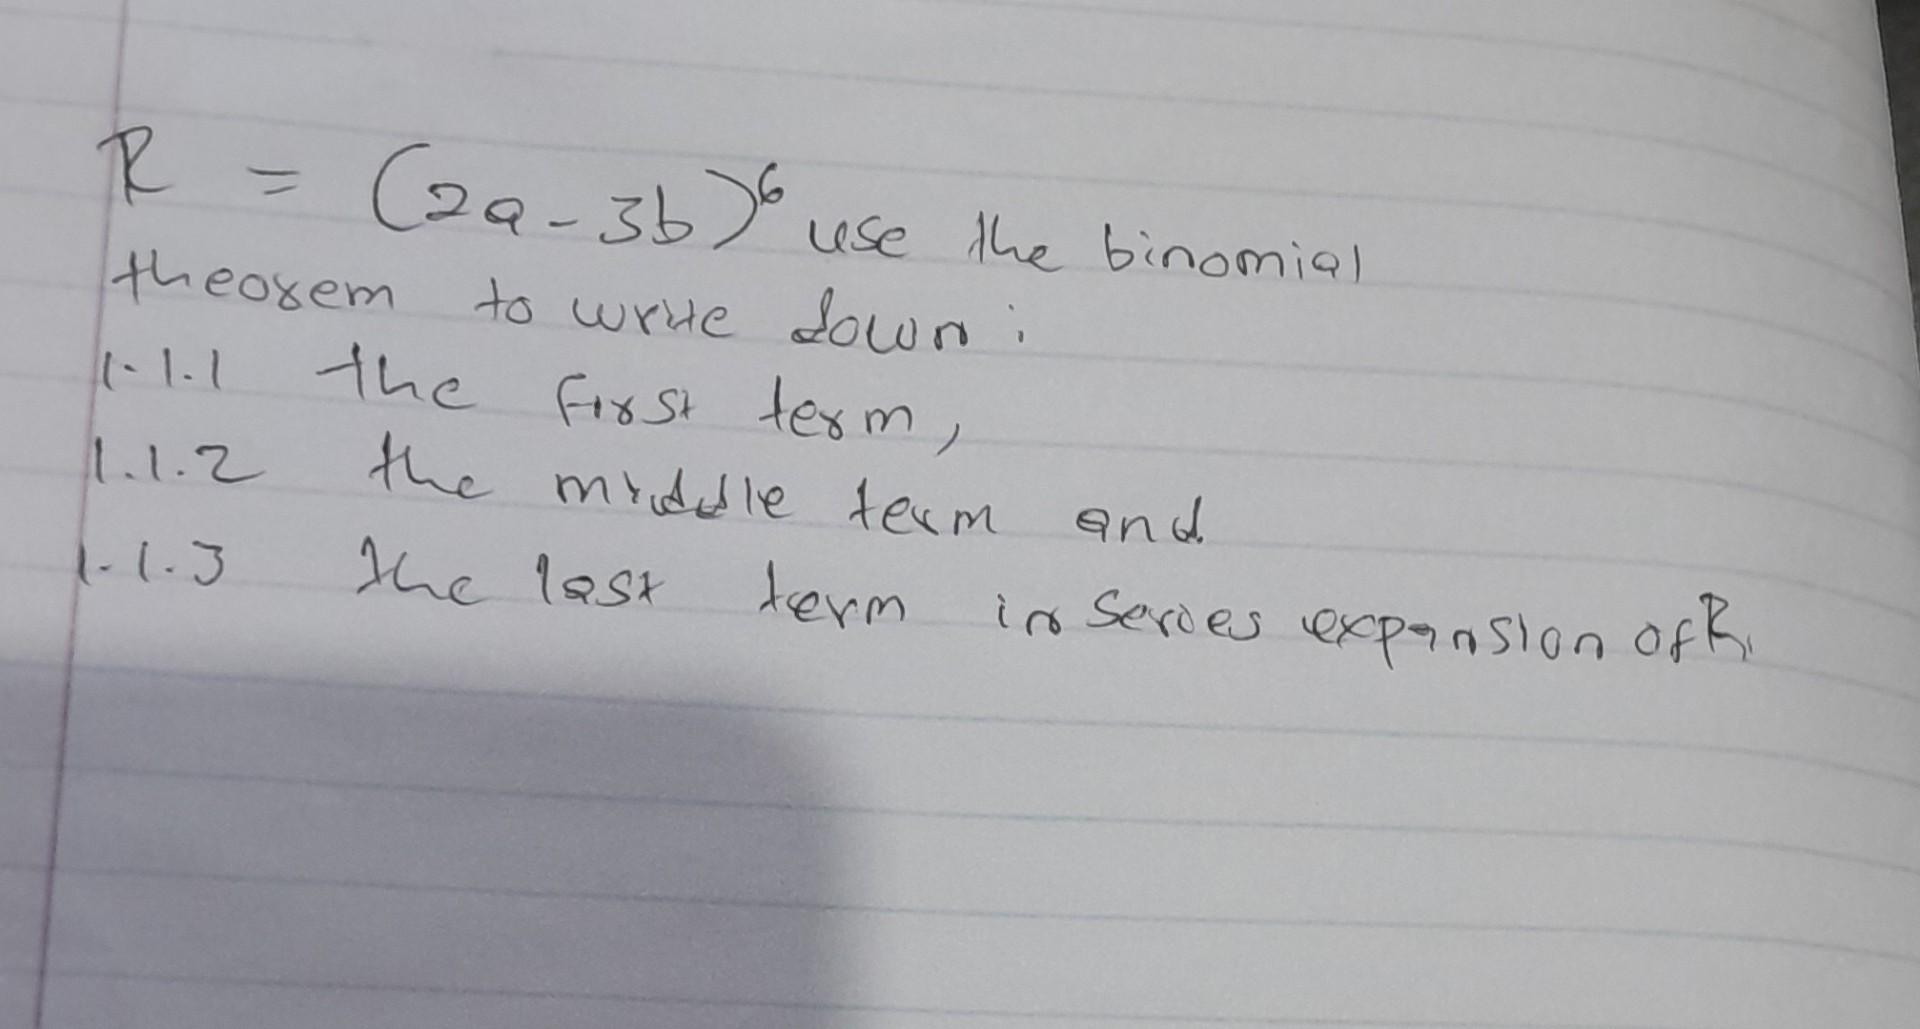 R = (2a - 3b)⁶ use the binomial
theorem to write down :
1.1.1 the first term,
1.1.2 the middle term and
1.1.3 the last term in series expansion of R.